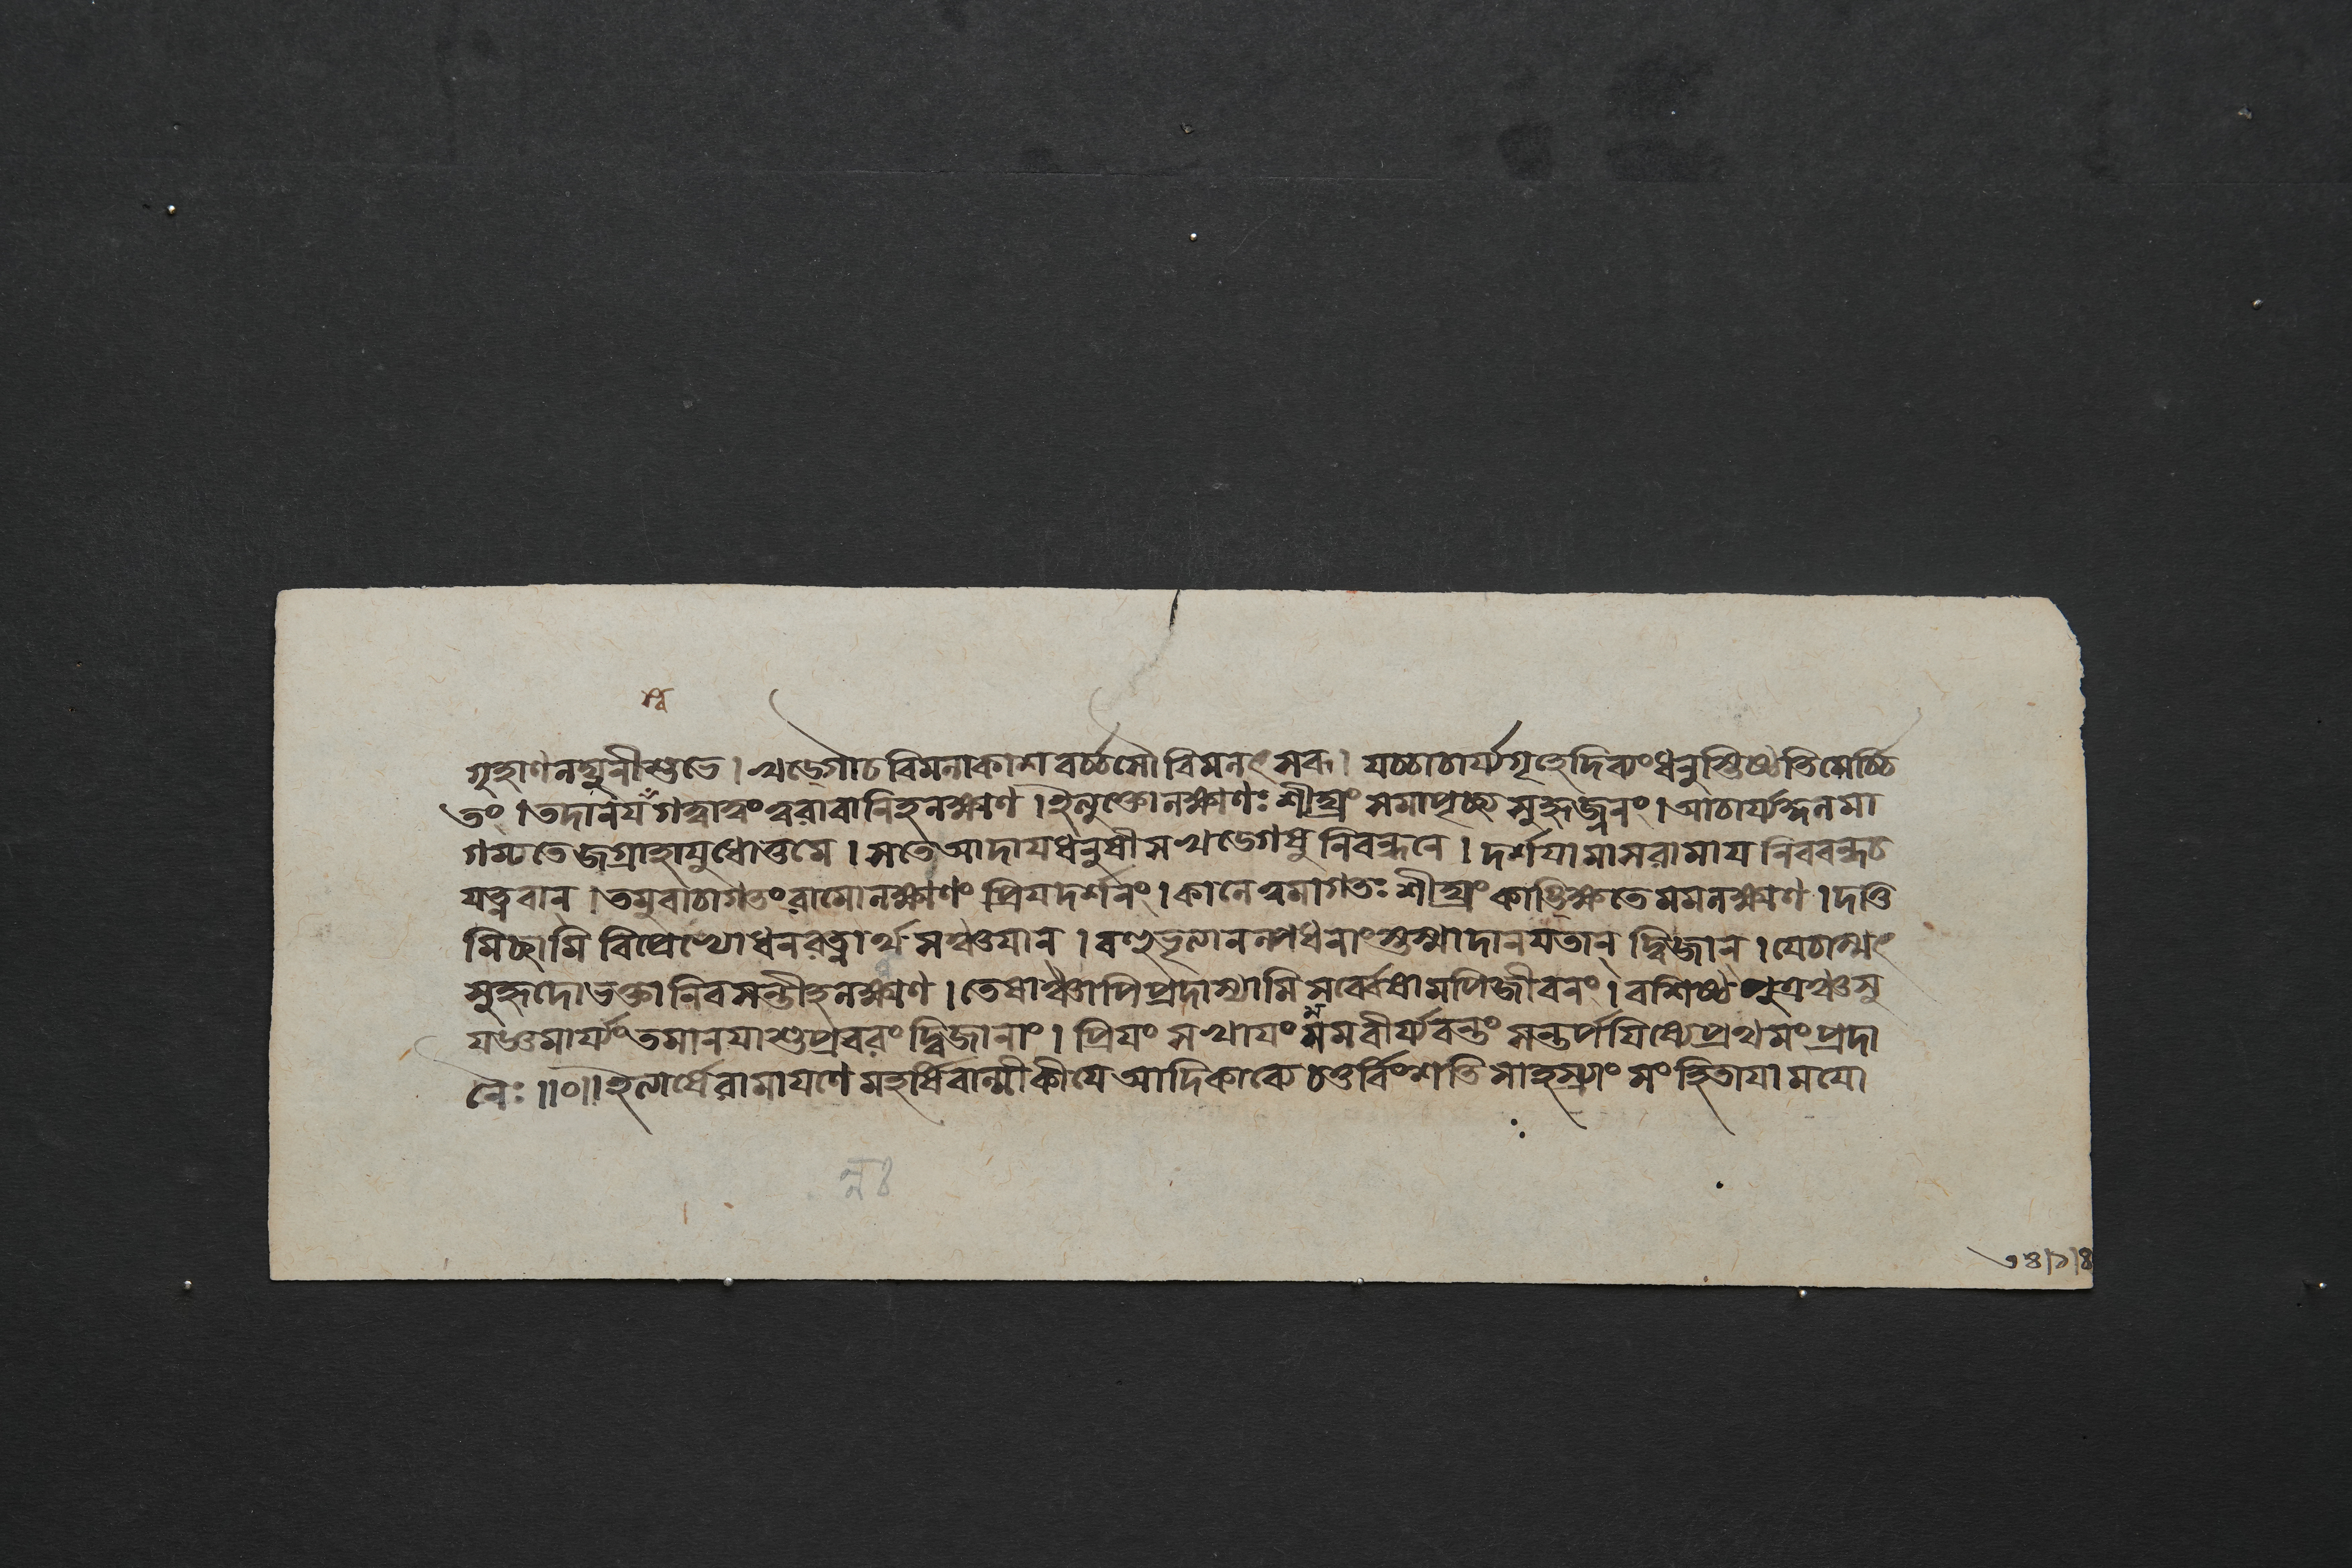 গৃহাণলঘুনীশুভে । খড়্গৌচবিমলাকাশবর্চ্চসৌবিমলৎসরূ । যচ্চাচার্য্যগৃহেদিব্যংধনুস্তিষ্ঠতিমের্চ্চি
তং । তদানযগত্বাত্বংত্বরাবানিহলক্ষ্মণ । ইত্যুক্তোলক্ষ্মণঃ শীঘ্রং সমাপৃচ্ছ্য সুহৃজ্জনং । আচার্য্যকুলমা
গম্যতেজগ্রাহাযুধোত্তমে । সতে আদাযধনুষীসখড়্গেষুনিবন্ধনে । দর্শযামাসরামায নিববন্ধচ
যত্নবান্ । তমুবাচাগতংরামোলক্ষ্মণং প্রিযদর্শনং । কালেত্বমাগতঃ শীঘ্রং কাঙ্ক্ষিতেমমলক্ষ্মণ । দাতু
মিচ্ছামি বিপ্রেভ্যোধনরত্নার্থসঞ্চযান্ । বহুভৃত্যানল্পধনাংস্তস্মাদানযতান্ দ্বিজান্ । যেচাস্মৎ
সুহৃদোভক্তানিবসন্তীহলক্ষ্মণ । তেষাঞ্চাপিপ্রদাস্যামি সর্ব্বেষামপিজীবনং । বশিষ্ঠপুত্রঞ্চসু
যজ্ঞমার্য্যংতমানযাশুপ্রবরং দ্বিজানাং । প্রিযং সখাযং মমবীর্য্যবন্তং সন্তর্পযিষ্যেপ্রথমংপ্রদা
নৈঃ ॥০॥ ইত্যার্ষেরামাযণে মহর্ষিবাল্মীকীযে আদিকাব্যে চতুর্বিংশতিসাহস্র্যাং সংহিতাযামযো